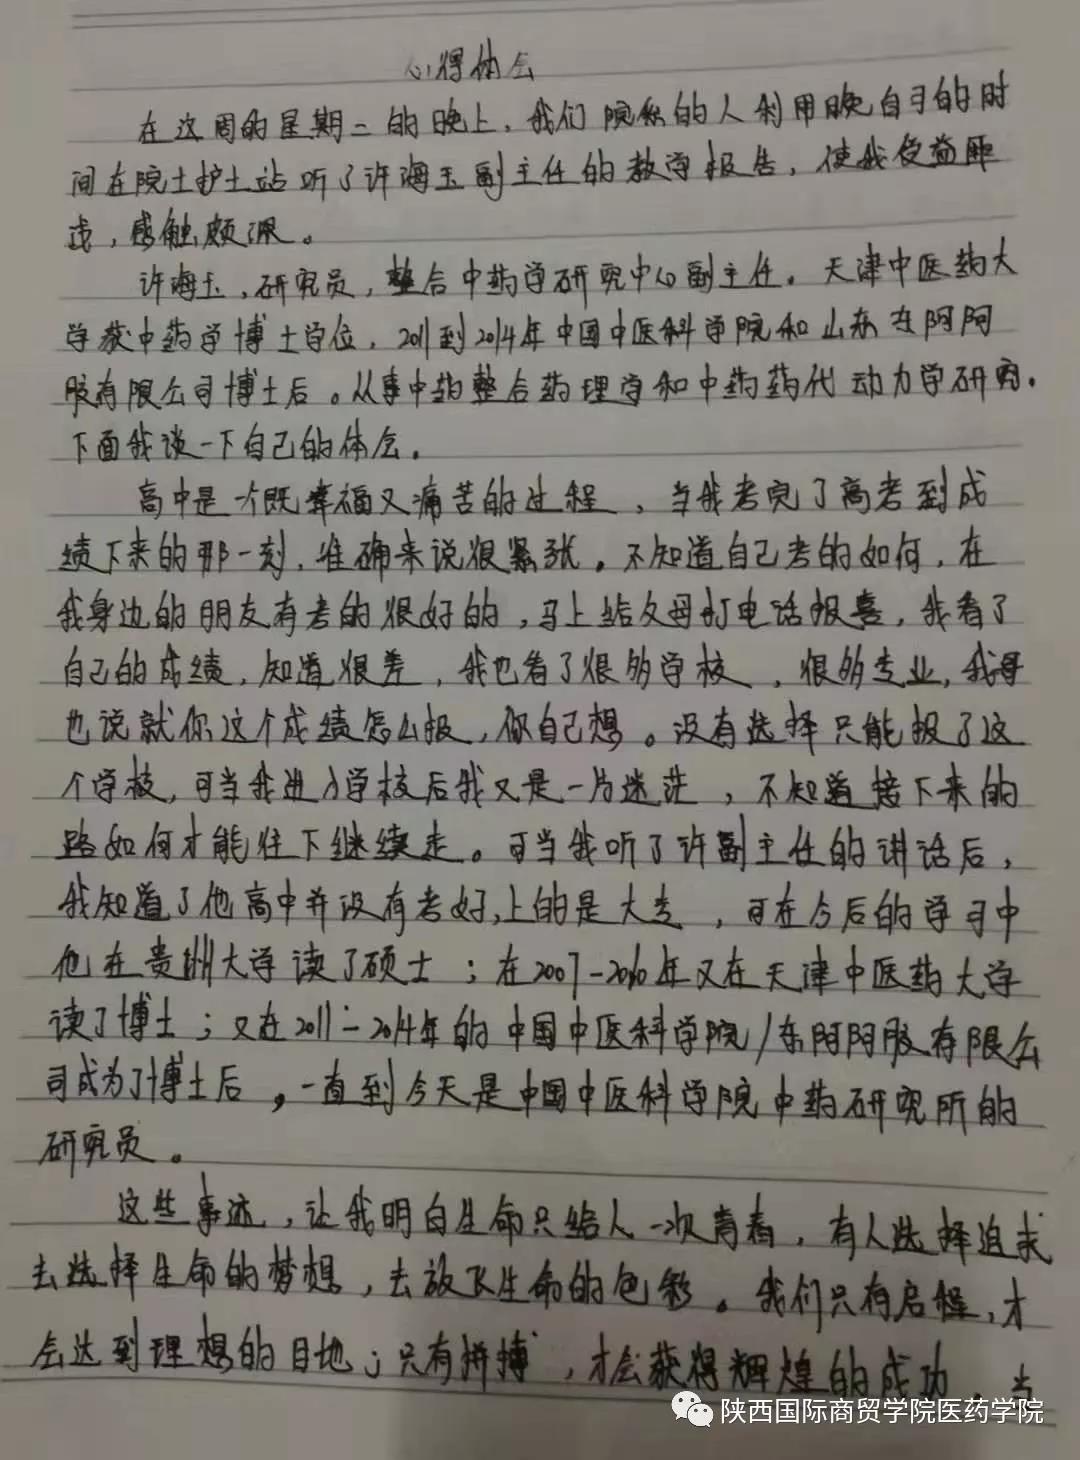 心得体会
在这周的星期二的晚上，我们院系的人利用晚自习的时
间在院士护士站听了许海玉副主任的教学报告，使我受益匪
浅，感触颇深。
许海玉，研究员，整合中药学研究中心副主任。天津中医药大
学获中药学博士学位，2011到2014年中国中医科学院和山东东阿阿
胶有限公司博士后。从事中药整合药理学和中药药代动力学研究。
下面我谈一下自己的体会。
高中是一个既幸福又痛苦的过程，当我考完了高考到成
绩下来的那一刻，准确来说很紧张。不知道自己考的如何，在
我身边的朋友有考的很好的，马上给父母打电话报喜，我看了
自己的成绩，知道很差，我也看了很多学校，很多专业，我哥
也说就你这个成绩怎么报，你自己想。没有选择只能报了这
个学校，可当我进入学校后我又是一片迷茫，不知道接下来的
路如何才能往下继续走。可当我听了许副主任的讲话后，
我知道了他高中并没有考好，上的是大专，可在今后的学习中
他在贵州大学读了硕士；在2007-2010年又在天津中医药大学
读了博士；又在2011-2014年的中国中医科学院/东阿阿胶有限公
司成为了博士后，一直到今天是中国中医科学院中药研究所的
研究员。
这些事迹，让我明白生命只给人一次青春，有人选择追求
去选择生命的梦想，去放飞生命的色彩。我们只有启程，才
会达到理想的目地；只有拼搏，才会获得辉煌的成功，当
陕西国际商贸学院医药学院